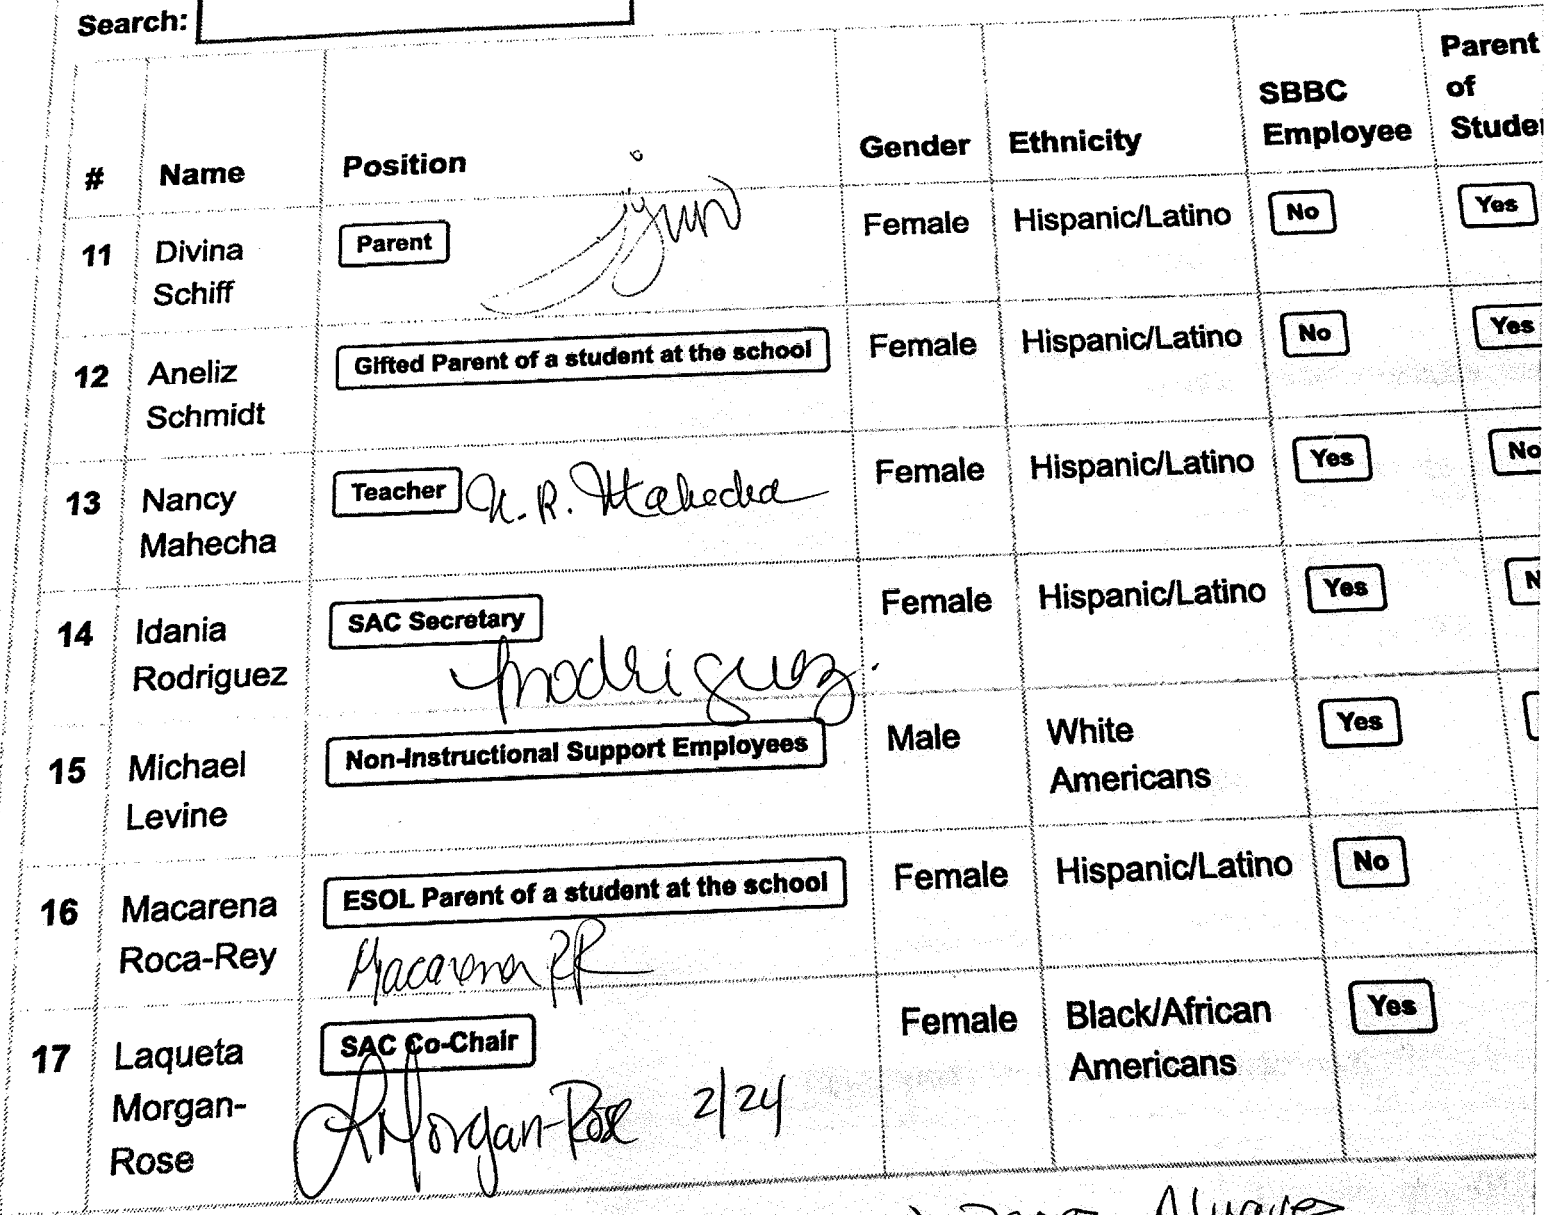 Search:
# Name Position Gender Ethnicity SBBC Employee Parent of
11 Divina Schiff Parent Female Hispanic/Latino No Yes
12 Aneliz Schmidt Gifted Parent of a student at the school Female Hispanic/Latino No Yes
13 Nancy Mahecha Teacher N. R. Mahecha Female Hispanic/Latino Yes No
14 Idania Rodriguez SAC Secretary Female Hispanic/Latino Yes
15 Michael Levine Non-Instructional Support Employees Male White Americans Yes
16 Macarena Roca-Rey ESOL Parent of a student at the school Macarena RR Female Hispanic/Latino No
17 Laqueta Morgan-Rose SAC Co-Chair LMorgan-Rose 2/24 Female Black/African Americans Yes